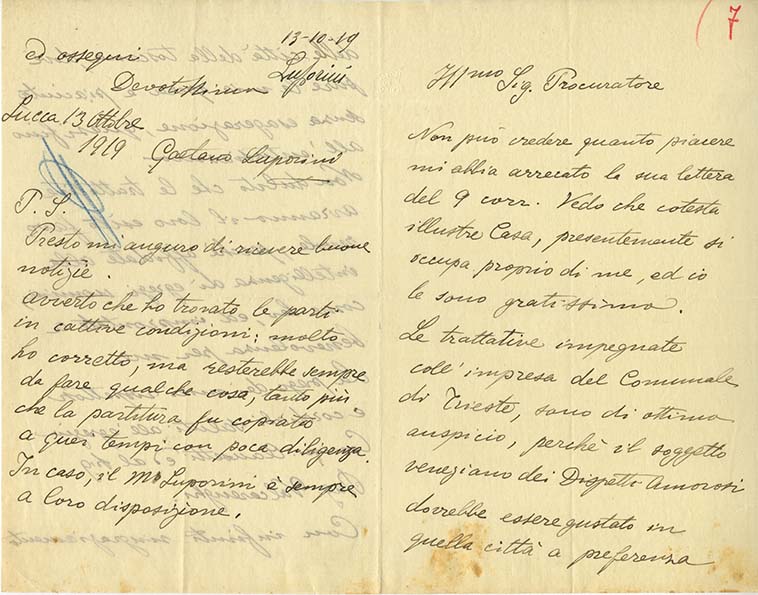 13-10-19
Luporini
ed ossequi
Devotissimo
Lucca 13 Ottobre
1919
Gaetano Luporini
P. S.
Presto mi auguro di ricevere buone
notizie.
Avverto che ho trovato le parti
in cattive condizioni; molto
ho corretto, ma resterebbe sempre
da fare qualche cosa, tanto più
che la partitura fu copiata
a quei tempi con poca diligenza.
In caso, il Mo Luporini è sempre
a loro disposizione.
7
Illmo Sig. Procuratore
Non può credere quanto piacere
mi abbia arrecato la sua lettera
del 9 corr. Vedo che cotesta
illustre Casa, presentemente si
occupa proprio di me, ed io
le sono gratissimo.
Le trattative impegnate
coll'impresa del Comunale
di Trieste, sono di ottimo
auspicio, perchè il soggetto
veneziano dei Dispetti Amorosi
dovrebbe essere gustato in
quella città a preferenza